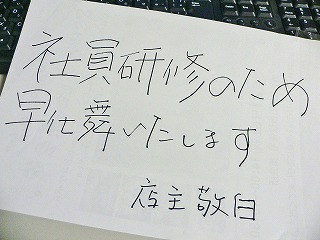 社員研修のため
早仕舞いたします
店主敬白